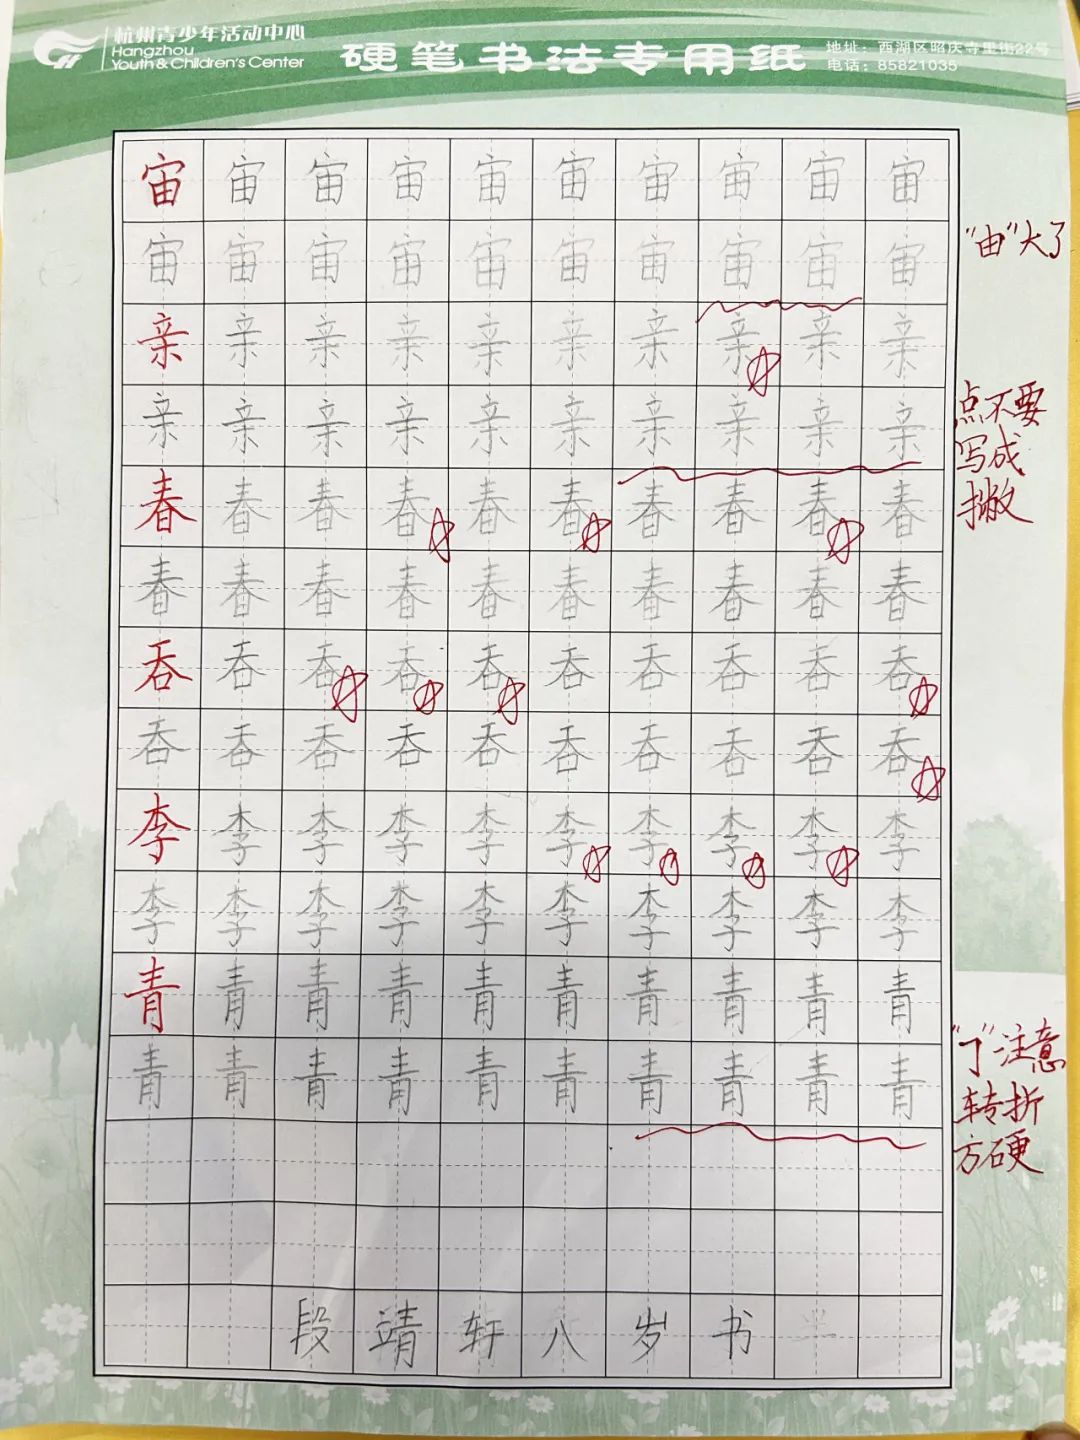 杭州青少年活动中心
Hangzhou
Youth & Children's Center
硬笔书法专用纸
地址：西湖区昭庆寺里街22号
电话：85821035
宙宙宙宙宙宙宙宙宙宙
宙宙宙宙宙宙宙宙宙宙
"由"大了
亲亲亲亲亲亲亲亲亲亲
亲亲亲亲亲亲亲亲亲亲
点不要
写成
撇
春春春春春春春春春春
春春春春春春春春春春
吞吞吞吞吞吞吞吞吞吞
吞吞吞吞吞吞吞吞吞吞
李李李李李李李李李李
李李李李李李李李李李
青青青青青青青青青青
青青青青青青青青青青
"𠃌"注意
转折
方硬
段靖轩八岁书